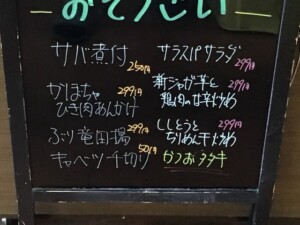 おそうざい
サバ煮付
250円
かぼちゃ
299円
ひき肉あんかけ
ぶり竜田揚
299円
キャベツ千切り
50円
サラスパサラダ
299円
新ジャガ芋と
299円
鶏肉の甘辛炒め
ししとうと
299円
ちりめん干炒め
かつおタタキ